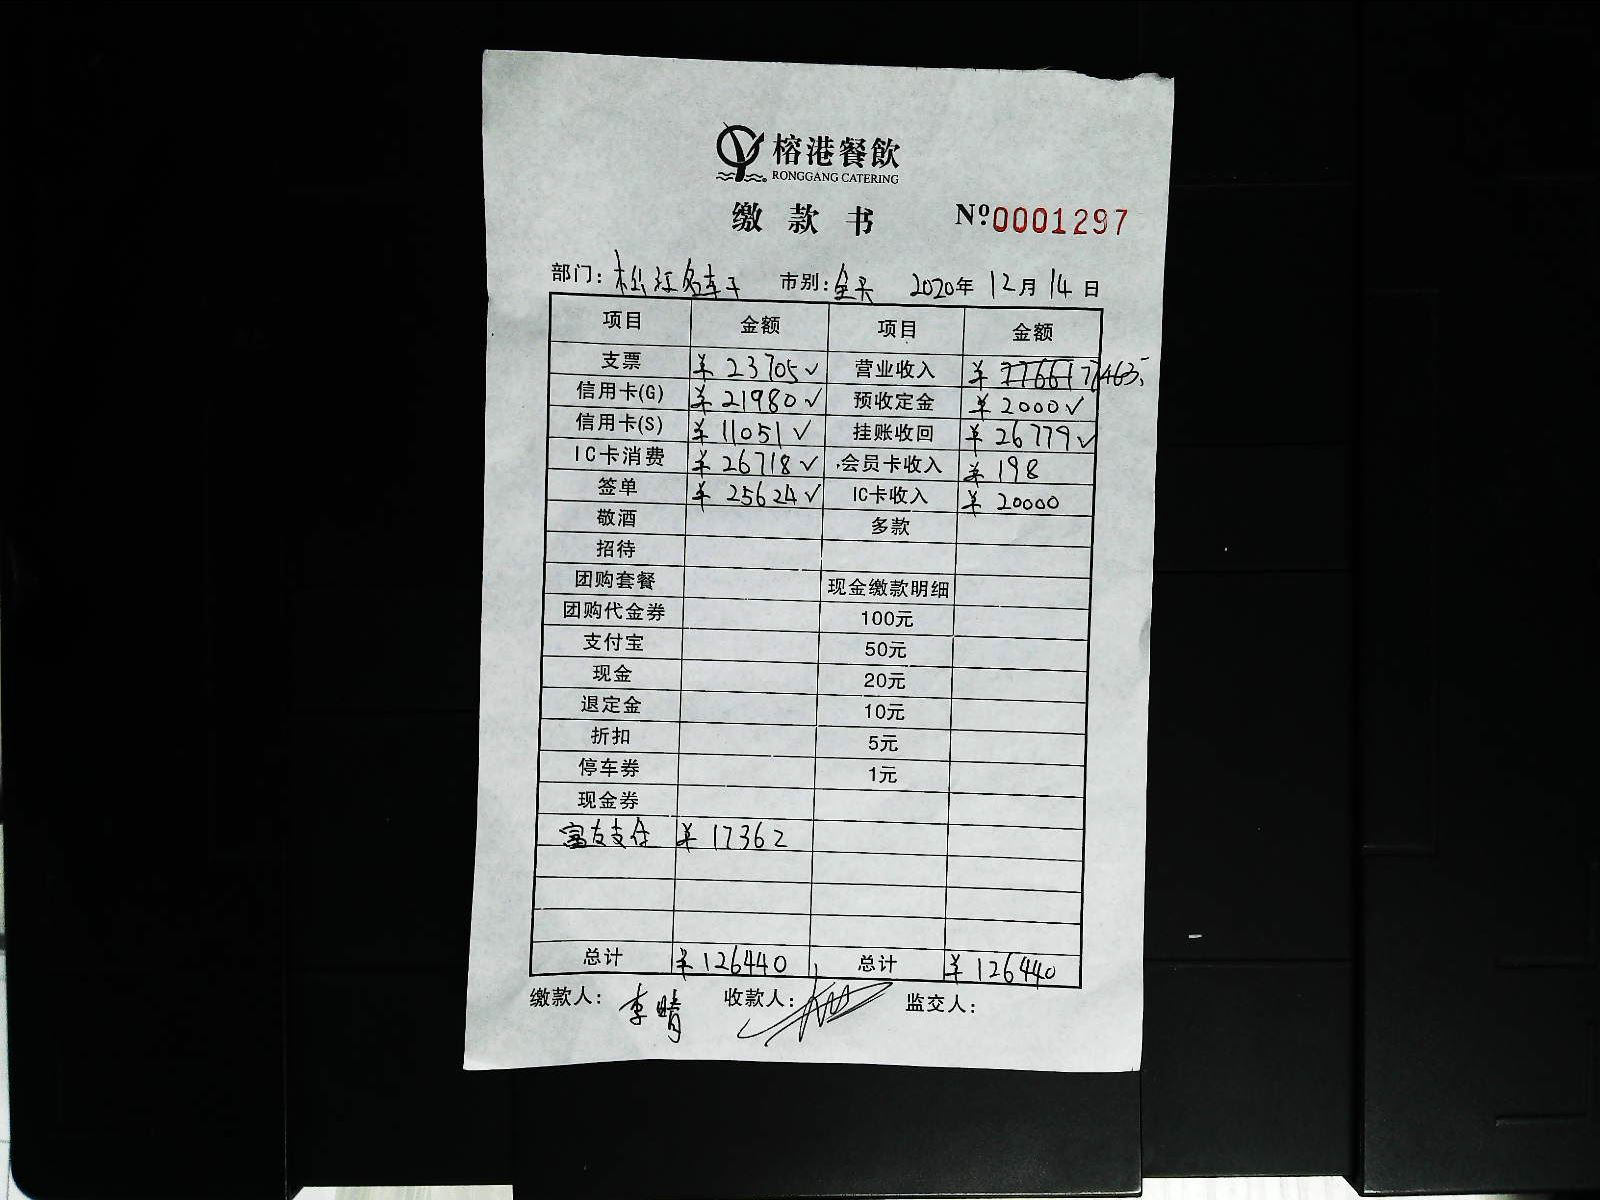 榕港餐飲
RONGGANG CATERING
缴款书 Nº0001297
部门: 松江 市别: 全天 2020年 12月 14日
项目 金额 项目 金额
支票 ¥23705✓ 营业收入 ¥77463
信用卡(G) ¥21980✓ 预收定金 ¥2000✓
信用卡(S) ¥11051✓ 挂账收回 ¥26779✓
IC卡消费 ¥26718✓ 会员卡收入 ¥198
签单 ¥25624✓ IC卡收入 ¥20000
敬酒 多款
招待
团购套餐 现金缴款明细
团购代金券 100元
支付宝 50元
现金 20元
退定金 10元
折扣 5元
停车券 1元
现金券
富友支付 ¥17362
总计 ¥126440 总计 ¥126440
缴款人: 李晴 收款人: 监交人: